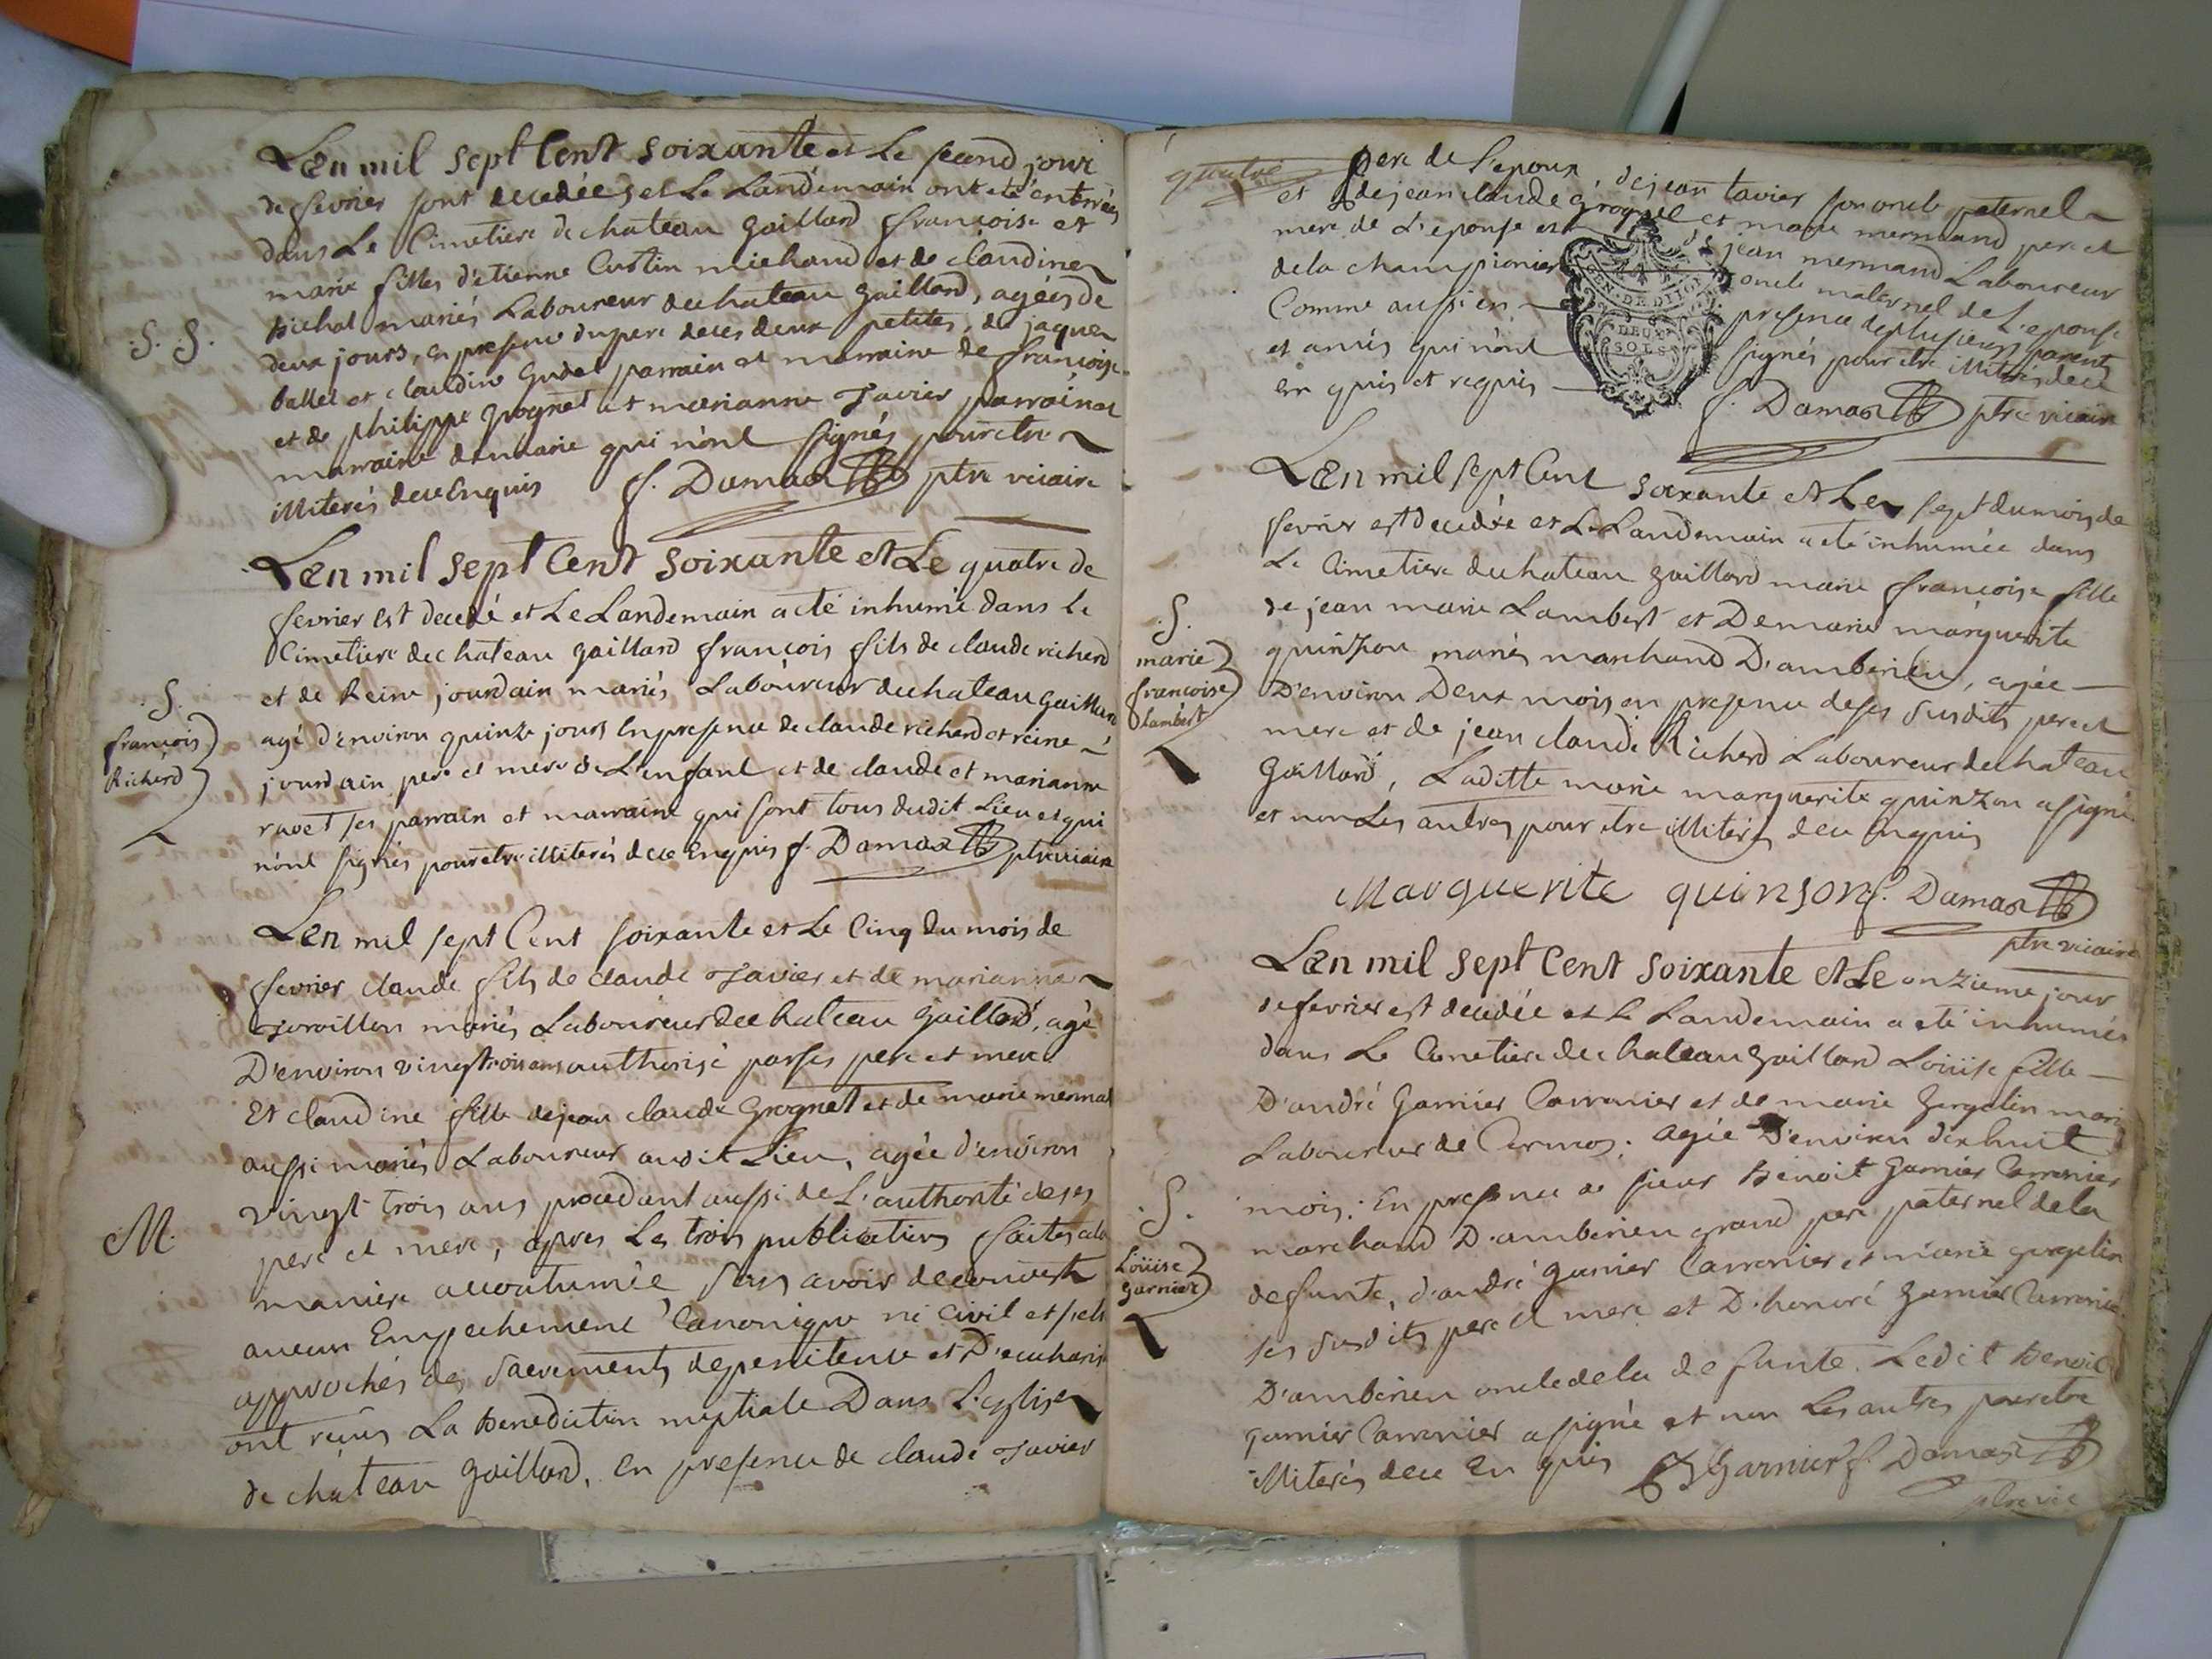 L'en mil sept Cent soixante et Le second jour
de fevrier sont decedées et Le Landemain ont eté enterrées
dans Le Cimetiere de chateau gaillard françoise et
marie filles d'etienne Custin michaud et de claudine
Bichat mariés Laboureur de chateau gaillard, agées de
deux jours, en presence du pere de ces deux petites, de jaques
ballet et claudine gudet parrain et marraine de françoise
et de philippe grognet et marianne Tavier parrain et
marraine de marie qui n'ont signés pour etre
illiterés de ce Enquis f. Damas ptre vicaire
.S. .S.
L'en mil sept Cent soixante et Le quatre de
fevrier est decedé et Le Landemain a eté inhumé dans le
Cimetiere de chateau gaillard françois fils de claude richerd
et de Reine jourdain mariés Laboureur de chateau gaillard
agé d'environ quinze jours En presence de claude richerd et reine
jourdain pere et mere de L'enfant et de claude et marianne
ravet ses parrain et marraine qui sont tous dudit Lieu et qui
n'ont signés pour etre illiterés de ce Enquis f. Damas ptre vicaire
.S.
françois
Richerd
L'en mil sept Cent soixante et Le Cinq du mois de
fevrier claude fils de claude Tavier et de marianne
mariés Laboureur de chateau gaillard, agé
D'environ vingt trois ans authorisé par ses pere et mere
Et claudine fille de jean claude Grognet et de marie mermand
aussi mariés Laboureur audit Lieu, agée d'environ
vingt trois ans procedant aussi de L'authorité de ses
pere et mere, apres Les trois publications faites a la
maniere accoutumée, sans avoir decouvert
aucun Empechement Canonique ni Civil et s'etre
approchés des sacrements de penitence et D'eucharis
ont reçus La Benediction nuptiale Dans L'eglise
de château gaillard, en presence de claude Tavier
M.
quatre
pere de l'epoux, de jean tavier son oncle paternel
et de jean claude grognet et marie mermand pere et
mere de L'epouse et de jean mermand Laboureur
de la championiere oncle maternel de L'epouse
Comme aussi en presence de plusieurs parents
et amis qui n'ont signés pour etre illiterés de ce
en quis et requis f. Damas ptre vicaire
GEN. DE DIJON
DEUX
SOLS
L'En mil sept Cent soixante et Le sept du mois de
fevrier est decedée et Le Landemain a eté inhumée dans
Le Cimetiere de chateau gaillard marie françoise fille
de jean marie Lambert et De marie marguerite
quinzon mariés marchand D'amberieu, agée
D'environ Deux mois en presence de ses susdits pere et
mere et de jean claude Richerd Laboureur de chateau
gaillard, Laditte marie marguerite quinzon a signé
et non Les autres pour etre illiterés de ce enquis
Marguerite quinson f. Damas
ptre vicaire
.S.
marie
françoise
Lambert
L'en mil sept Cent soixante et Le onzieme jour
de fevrier est decedée et le Landemain a eté inhumée
dans Le Cimetiere de chateau gaillard Loüise fille
D'andré Garnier Carronier et de marie gurgelin mariés
Laboureur de Cermos. agée D'environ dix huit
mois. En presence de sieur Benoit Garnier Carronier
marchand D'amberieu grand pere paternel de la
defunte, d'andré garnier Carronier et marie gurgelin
ses susdits pere et mere et D'honoré garnier Carronier
D'amberieu oncle de la defunte. Ledit Benoit
garnier Carronier a signé et non Les autres pour etre
illiterés de ce En quis B Garnier f. Damas
ptre vic
.S.
Loüise
garnier